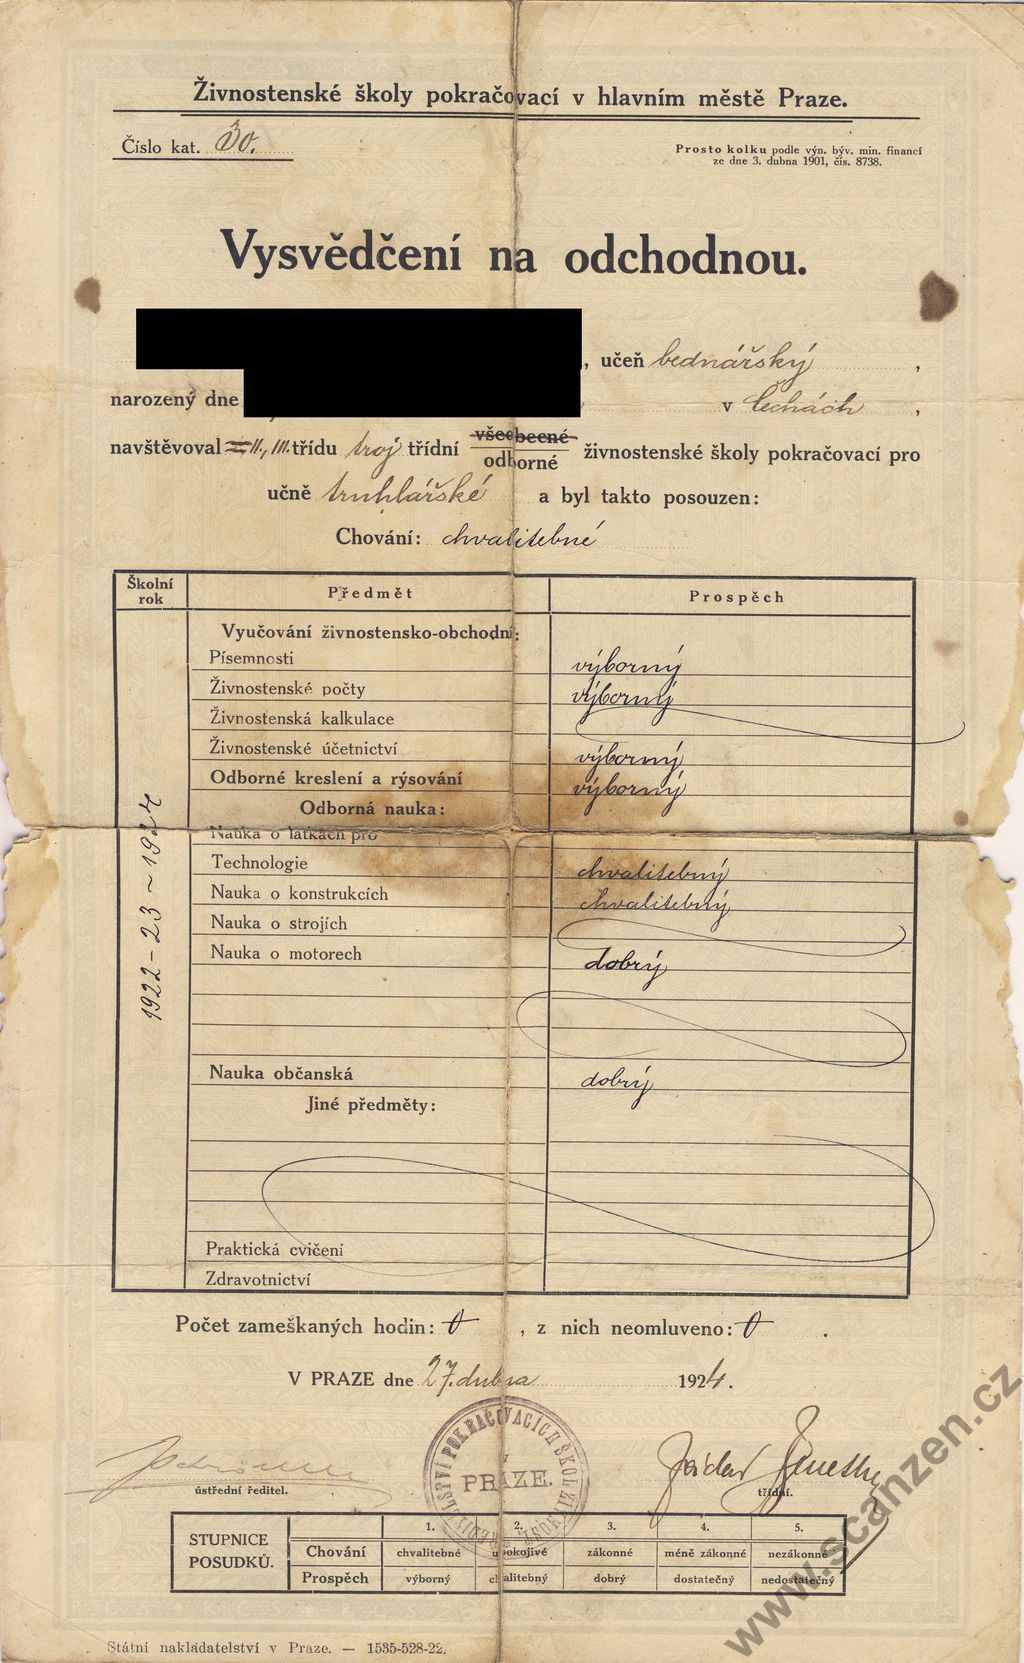 Živnostenské školy pokračovací v hlavním městě Praze.
Číslo kat. 30.
Prosto kolku podle výn. býv. min. financí
ze dne 3. dubna 1901, čís. 8738.
Vysvědčení na odchodnou.
, učeň bednářský ,
narozený dne v Čechách ,
navštěvoval II., III. třídu troj třídní všeobecné odborné živnostenské školy pokračovací pro
učně truhlářské a byl takto posouzen:
Chování: chvalitebné
Školní rok Předmět Prospěch
1922-23-1924
Vyučování živnostensko-obchodní:
Písemnosti výborný
Živnostenské počty výborný
Živnostenská kalkulace
Živnostenské účetnictví výborný
Odborné kreslení a rýsování výborný
Odborná nauka:
Nauka o látkách pro
Technologie chvalitebný
Nauka o konstrukcích chvalitebný
Nauka o strojích
Nauka o motorech dobrý
Nauka občanská dobrý
Jiné předměty:
Praktická cvičení
Zdravotnictví
Počet zameškaných hodin: 0 , z nich neomluveno: 0 .
V PRAZE dne 27. dubna 1924.
POKRAČOVACÍCH ŠKOL
PRAZE.
ústřední ředitel. třídní.
STUPNICE POSUDKŮ.
1. 2. 3. 4. 5.
Chování chvalitebné uspokojivé zákonné méně zákonné nezákonné
Prospěch výborný chvalitebný dobrý dostatečný nedostatečný
Státní nakladatelství v Praze. — 1535-528-22.
www.scanzen.cz